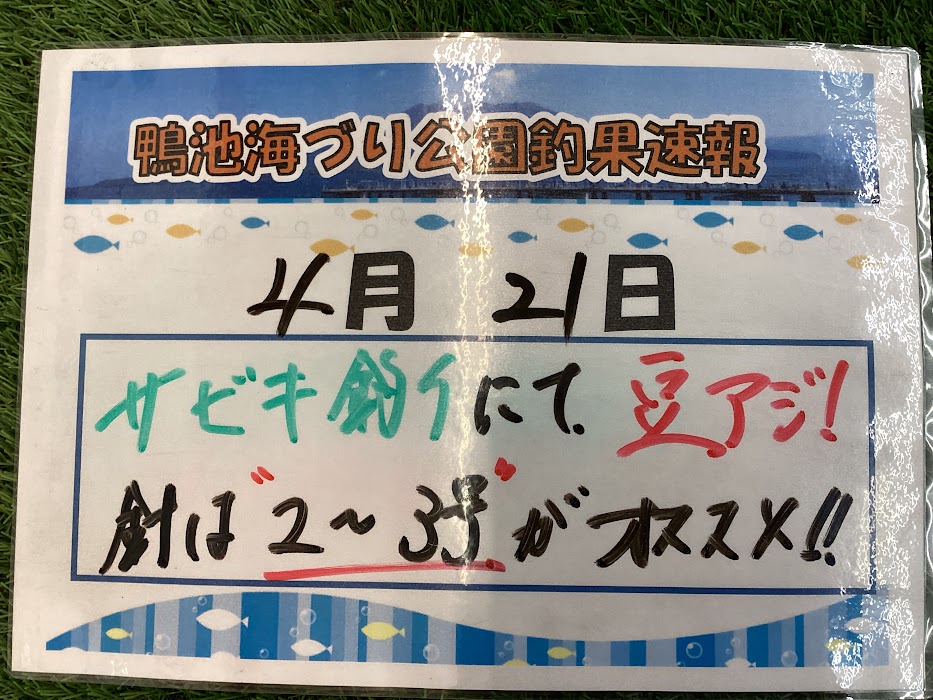 鴨池海づり公園釣果速報
4月 21日
サビキ釣りにて、豆アジ!
針は"2～3号"がオススメ!!